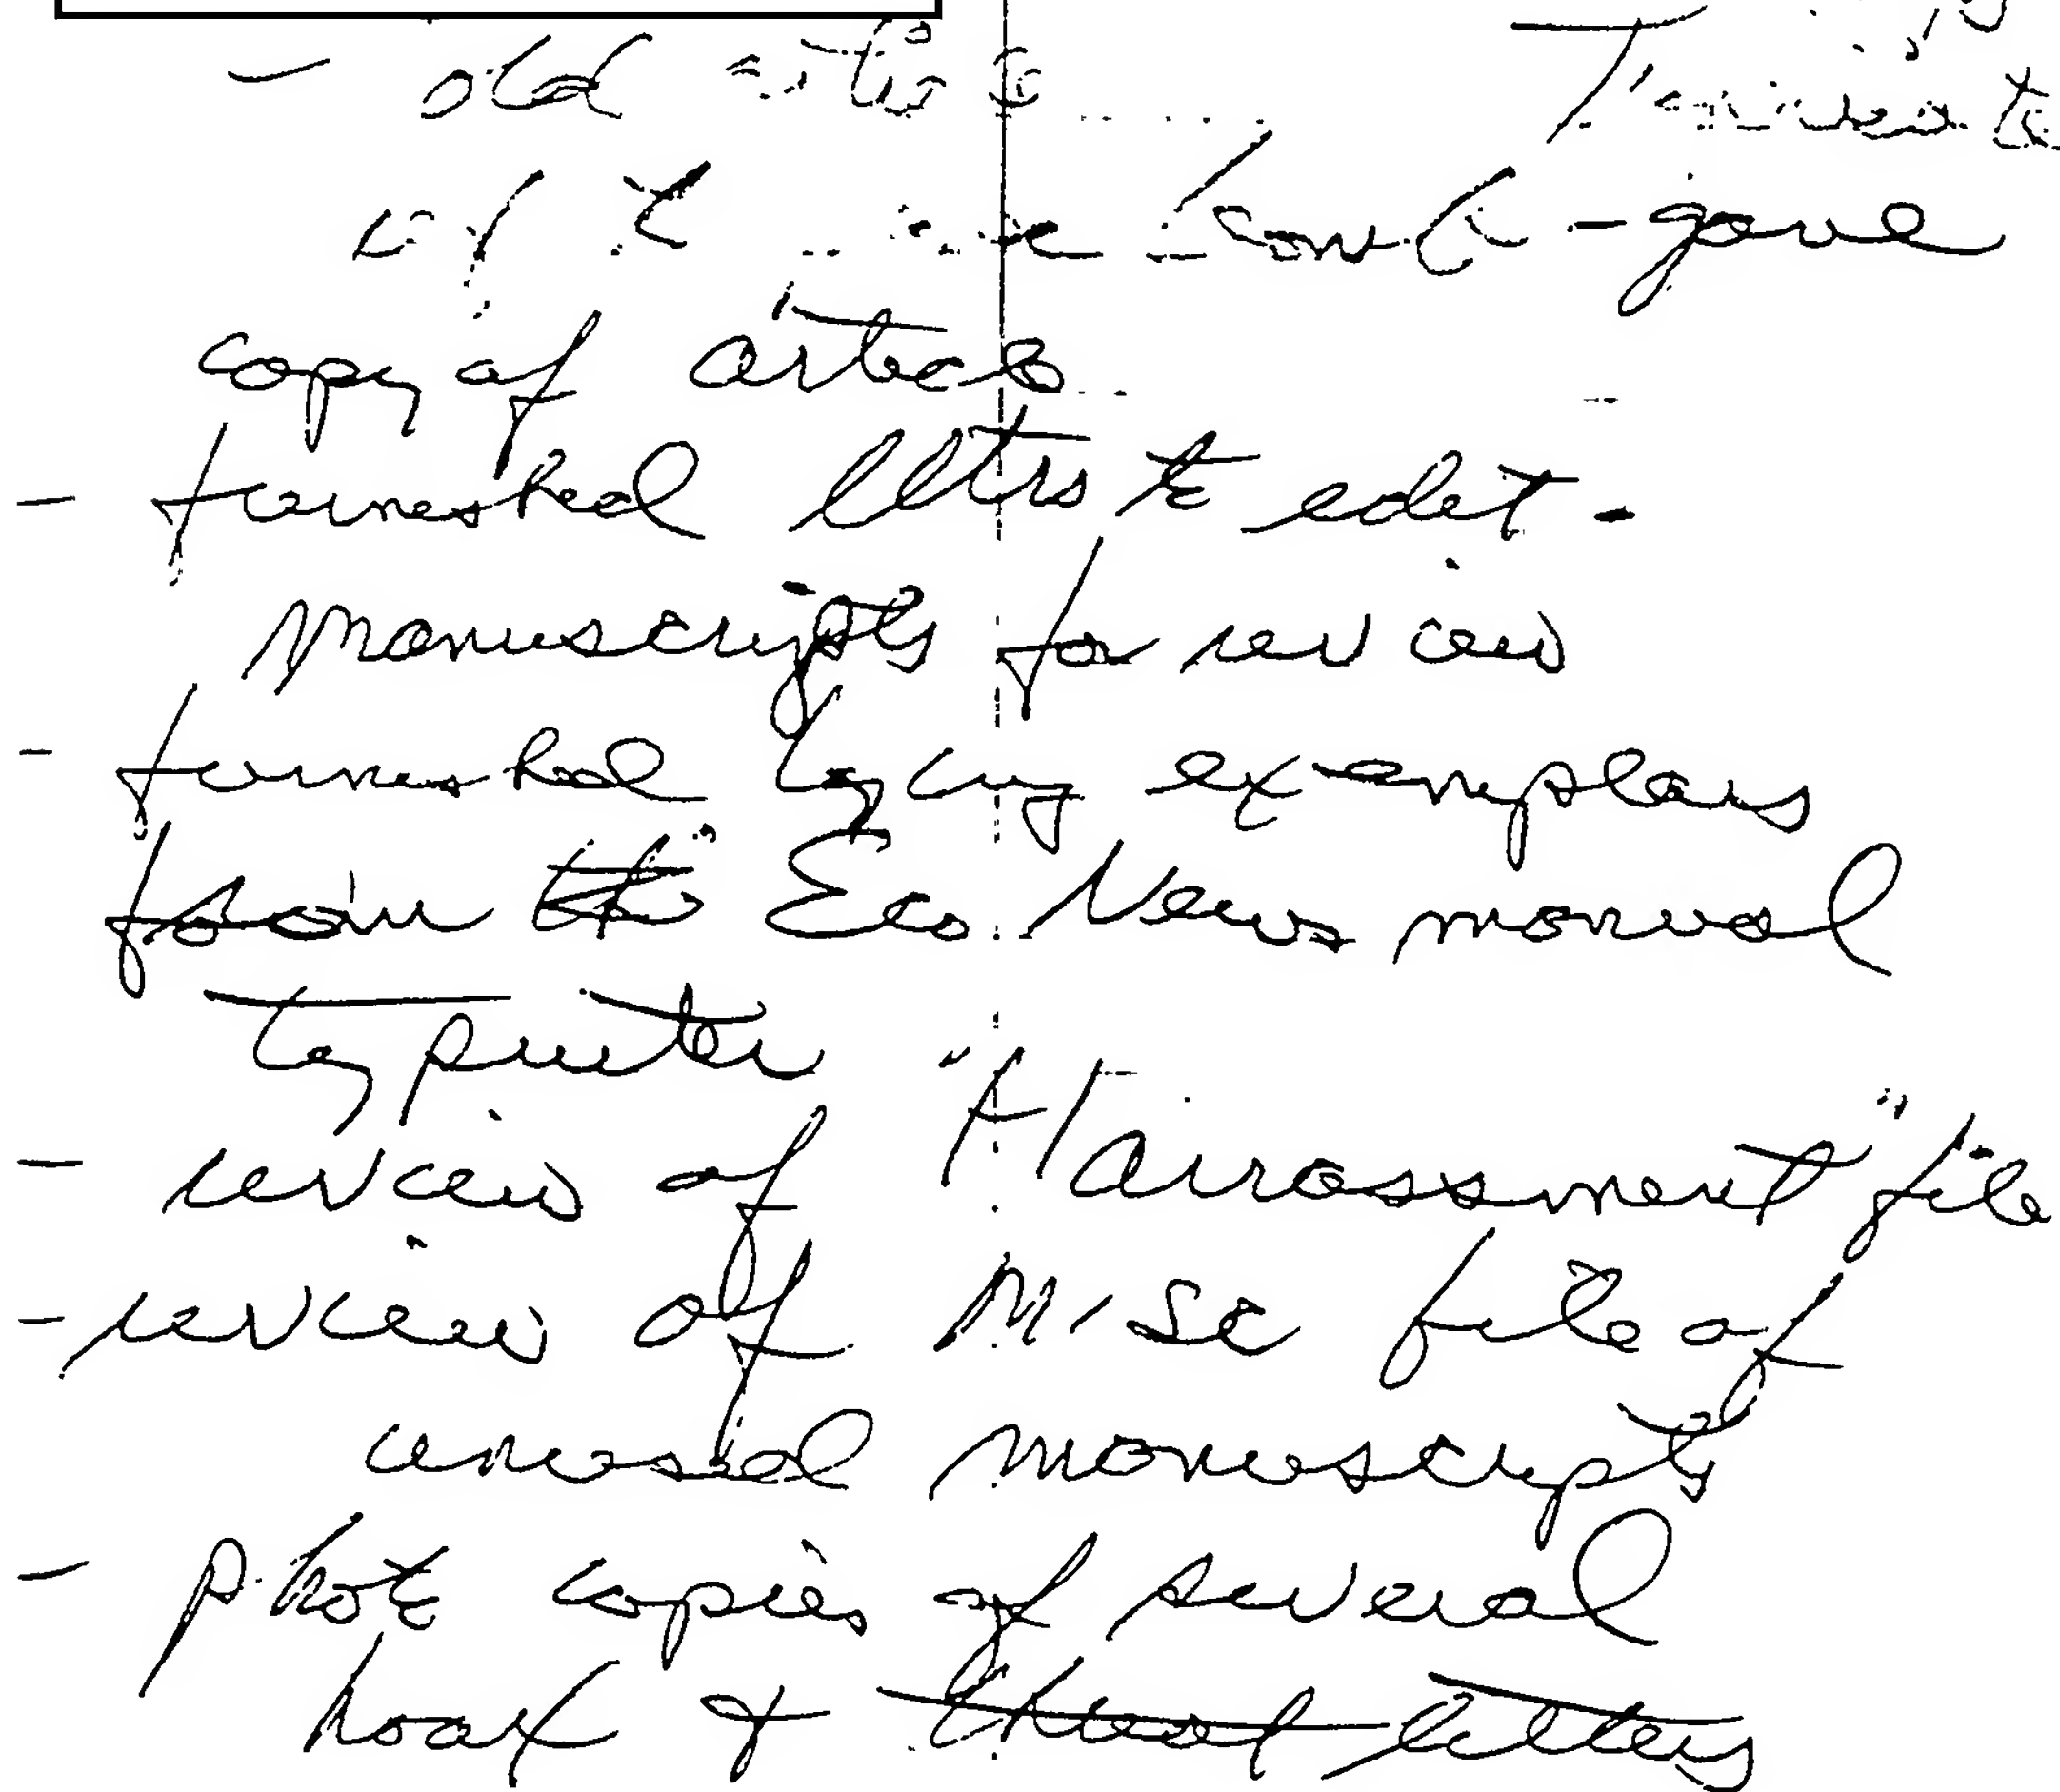 - old
- gave
copy of article
- furnished lttrs to edit -
manuscripts for review
- furnished typing exemplars
from the Eco News manual
typwriter
- review of "Harrassment" file
- review of Misc file of
unused manuscripts
- photo copies of several
hoax & threat letters